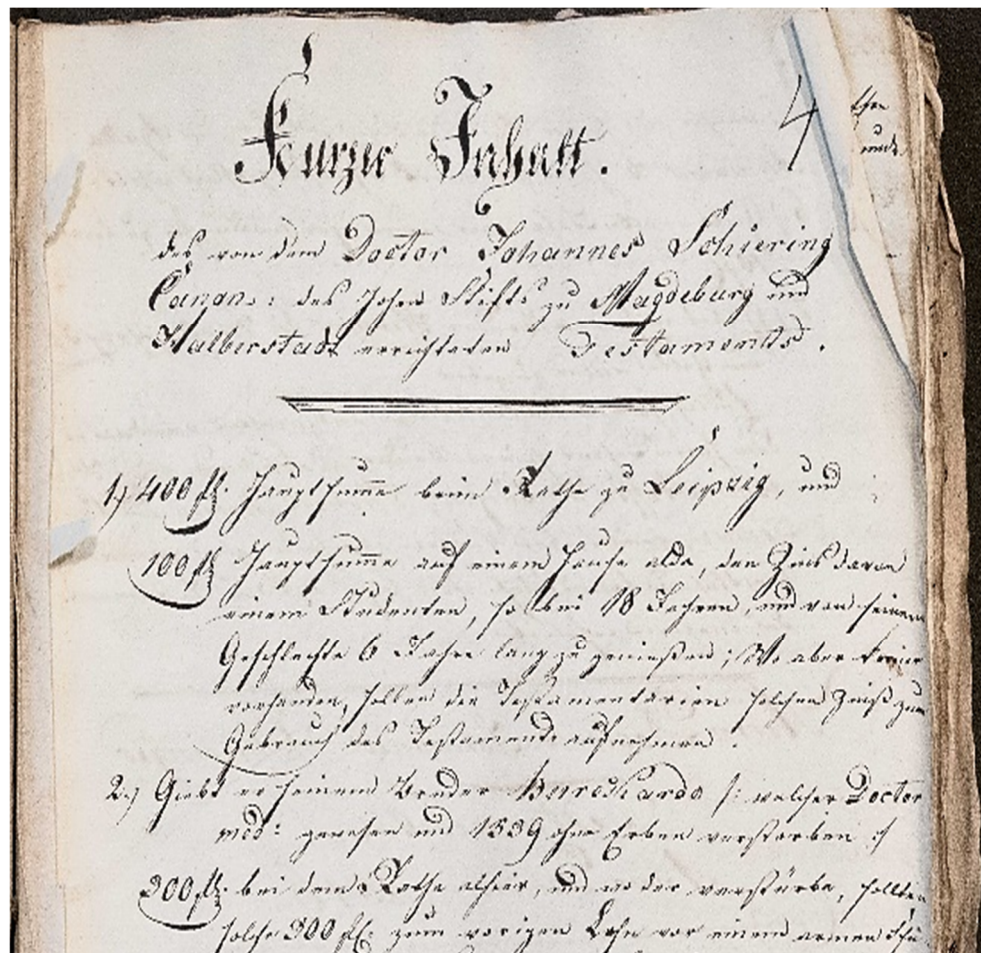 Kurzer Inhalt.
4
des von dem Doctor Johannes Schiering
Canon: des hohen Stifts zu Magdeburg und
Halberstadt errichteten Testaments.
1.) 400 fl. Hauptsumme beim Rathe zu Leipzig, und
100 fl. Hauptsumme auf einem Hause alda, den Zins davon
einem Studenten, so bei 18 Jahren, und von seinem
Geschlechte 6 Jahre lang zu genießen; Wo aber keiner
vorhanden, sollen die Testamentarien solchen Zinß zum
Gebrauch des Testaments aufnehmen.
2.) Giebt er seinem Bruder /: welcher Doctor
med: gewesen und 1539 ohne Erben verstorben :/
300 fl. bei dem Rathe alhier, und wo der verstürbe, sollten
solche 300 fl. zum vorigen Lehn vor einem armen Schü-